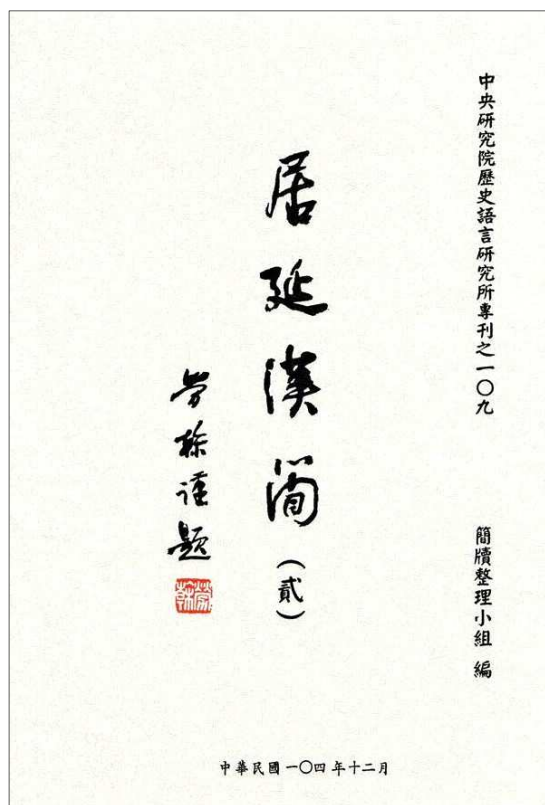 中央研究院歷史語言研究所專刊之一〇九
簡牘整理小組 編
居延漢簡(貳)
勞榦謹題
勞榦
中華民國一〇四年十二月